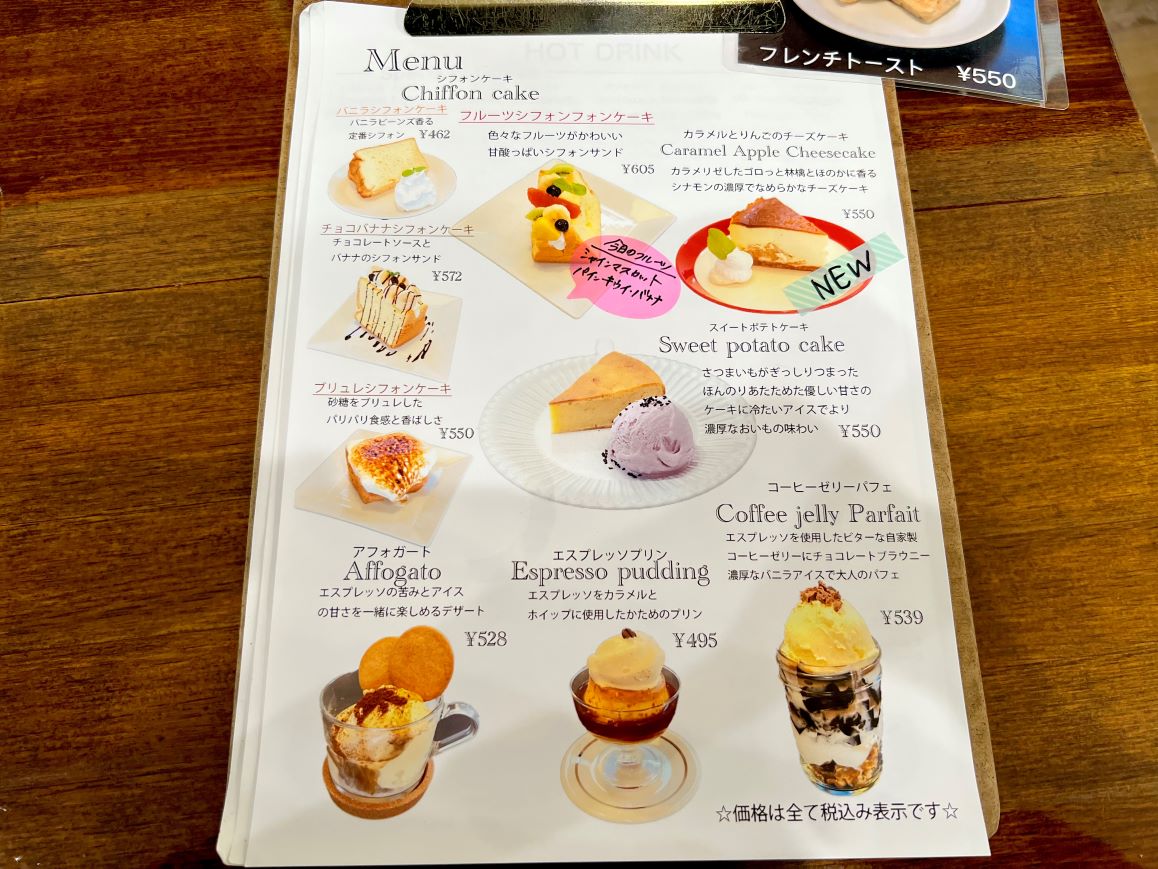 Menu
シフォンケーキ
Chiffon cake
バニラシフォンケーキ
バニラビーンズ香る
定番シフォン ¥462
フルーツシフォンフォンケーキ
色々なフルーツがかわいい
甘酸っぱいシフォンサンド
¥605
今日のフルーツ
シャインマスカット
パイン・キウイ・バナナ
チョコバナナシフォンケーキ
チョコレートソースと
バナナのシフォンサンド
¥572
ブリュレシフォンケーキ
砂糖をブリュレした
パリパリ食感と香ばしさ
¥550
カラメルとりんごのチーズケーキ
Caramel Apple Cheesecake
カラメリゼしたゴロっと林檎とほのかに香る
シナモンの濃厚でなめらかなチーズケーキ
¥550
NEW
スイートポテトケーキ
Sweet potato cake
さつまいもがぎっしりつまった
ほんのりあたためた優しい甘さの
ケーキに冷たいアイスでより
濃厚なおいもの味わい ¥550
アフォガート
Affogato
エスプレッソの苦みとアイス
の甘さを一緒に楽しめるデザート
¥528
エスプレッソプリン
Espresso pudding
エスプレッソをカラメルと
ホイップに使用したかためのプリン
¥495
コーヒーゼリーパフェ
Coffee jelly Parfait
エスプレッソを使用したビターな自家製
コーヒーゼリーにチョコレートブラウニー
濃厚なバニラアイスで大人のパフェ
¥539
☆価格は全て税込み表示です☆
フレンチトースト ¥550
HOT DRINK